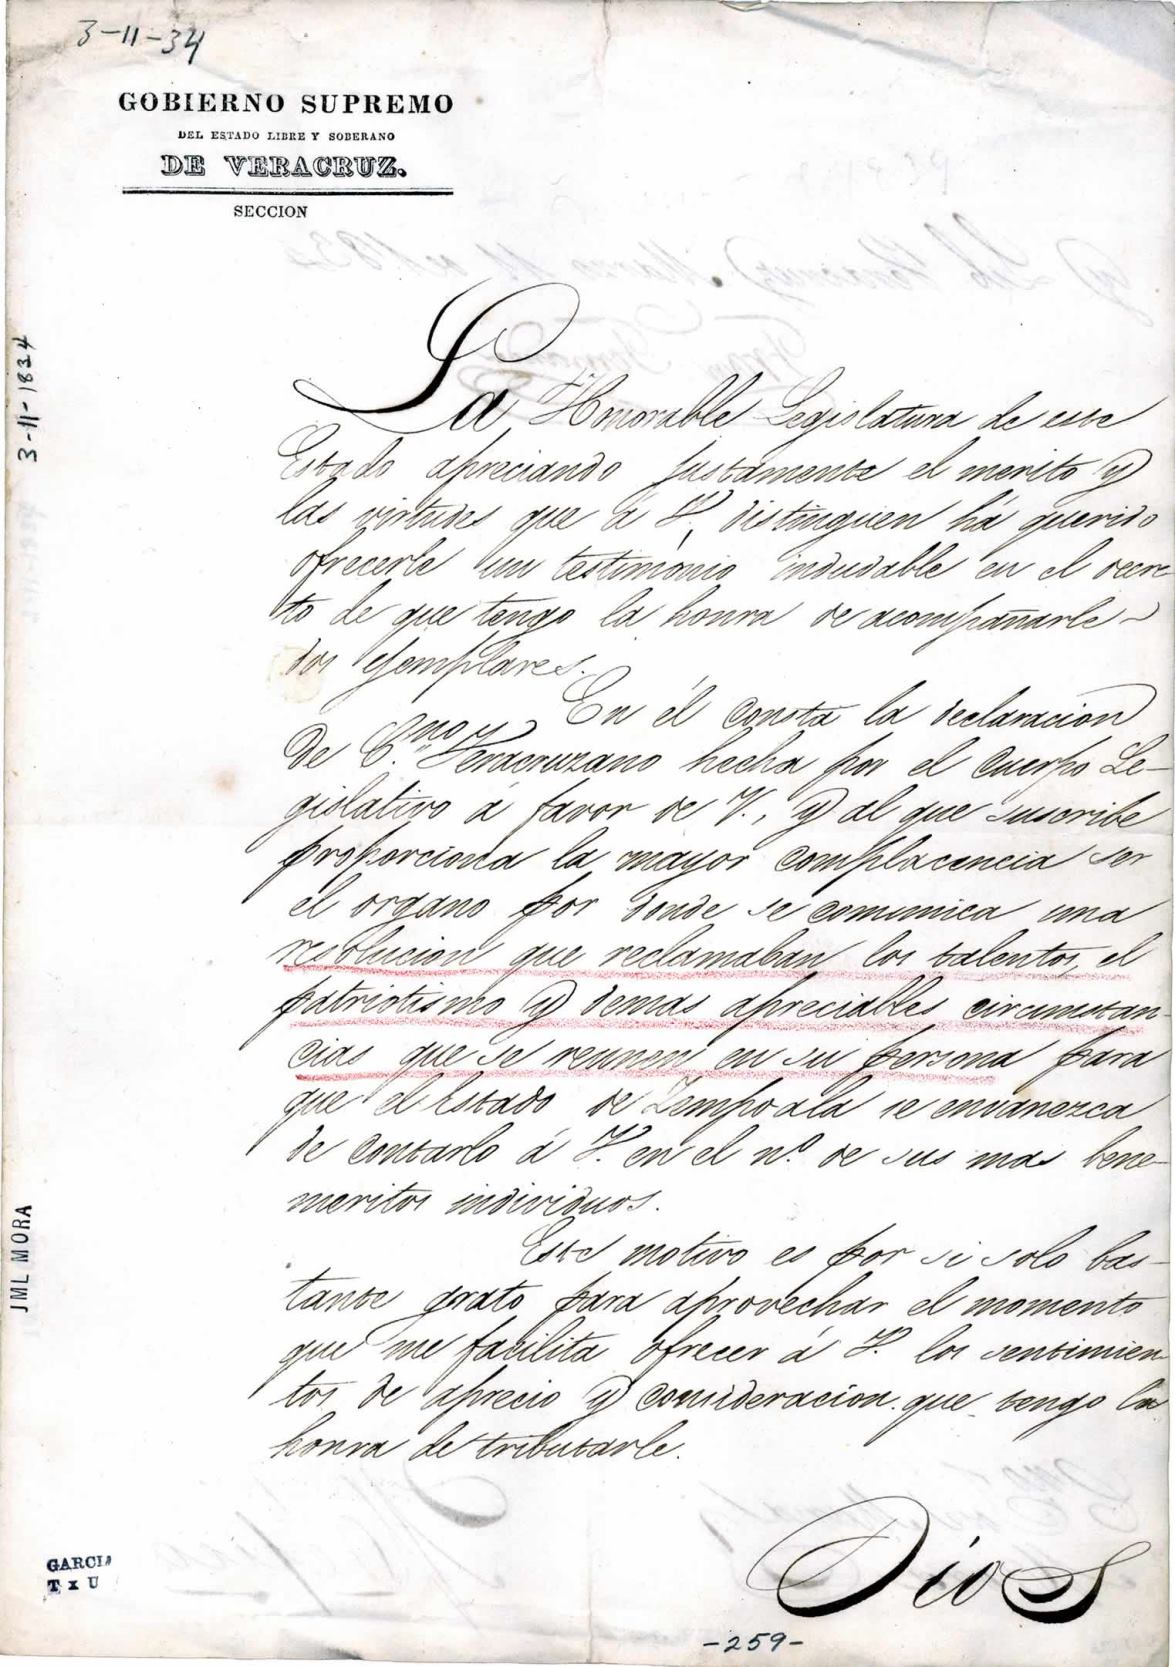 3-11-34
GOBIERNO SUPREMO
DEL ESTADO LIBRE Y SOBERANO
DE VERACRUZ.
SECCION
La Honorable Legislatura de este
Estado apreciando justamente el merito y
las virtudes que á V. distinguen há querido
ofrecerle un testimonio indudable en el decre-
to de que tengo la honra de acompañarle
dos ejemplares.
En él consta la declaracion
de C.no Veracruzano hecha por el Cuerpo Le-
gislativo á favor de V., y al que suscribe
proporciona la mayor complacencia ser
el organo por donde se comunica una
resolucion que reclamaban los talentos, el
patriotismo y demas apreciables circunstan-
cias que se reunen en su persona para
que el Estado de Zempoala se envanezca
de contarlo á V. en el nº de sus mas bene-
meritos individuos.
Este motivo es por si solo bas-
tante grato para aprovechar el momento
que me facilita ofrecer á V. los sentimien-
tos de aprecio y consideracion que tengo la
honra de tributarle.
Dios
-259-
3-11-1834
JML MORA
GARCIA
T x U